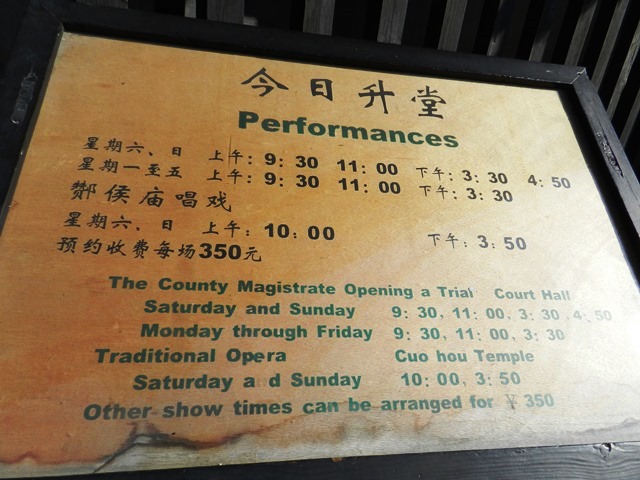 今日升堂
Performances
星期六、日 上午: 9: 30 11: 00 下午: 3: 30 4: 50
星期一至五 上午: 9: 30 11: 00 下午: 3: 30
酂侯庙唱戏
星期六、日 上午: 10: 00 下午: 3: 50
预约收费每场350元
The County Magistrate Opening a Trial Court Hall
Saturday and Sunday 9: 30, 11: 00, 3: 30 ,4: 50
Monday through Friday 9: 30, 11: 00, 3: 30
Traditional Opera Cuo hou Temple
Saturday a d Sunday 10: 00, 3: 50
Other show times can be arranged for ¥ 350